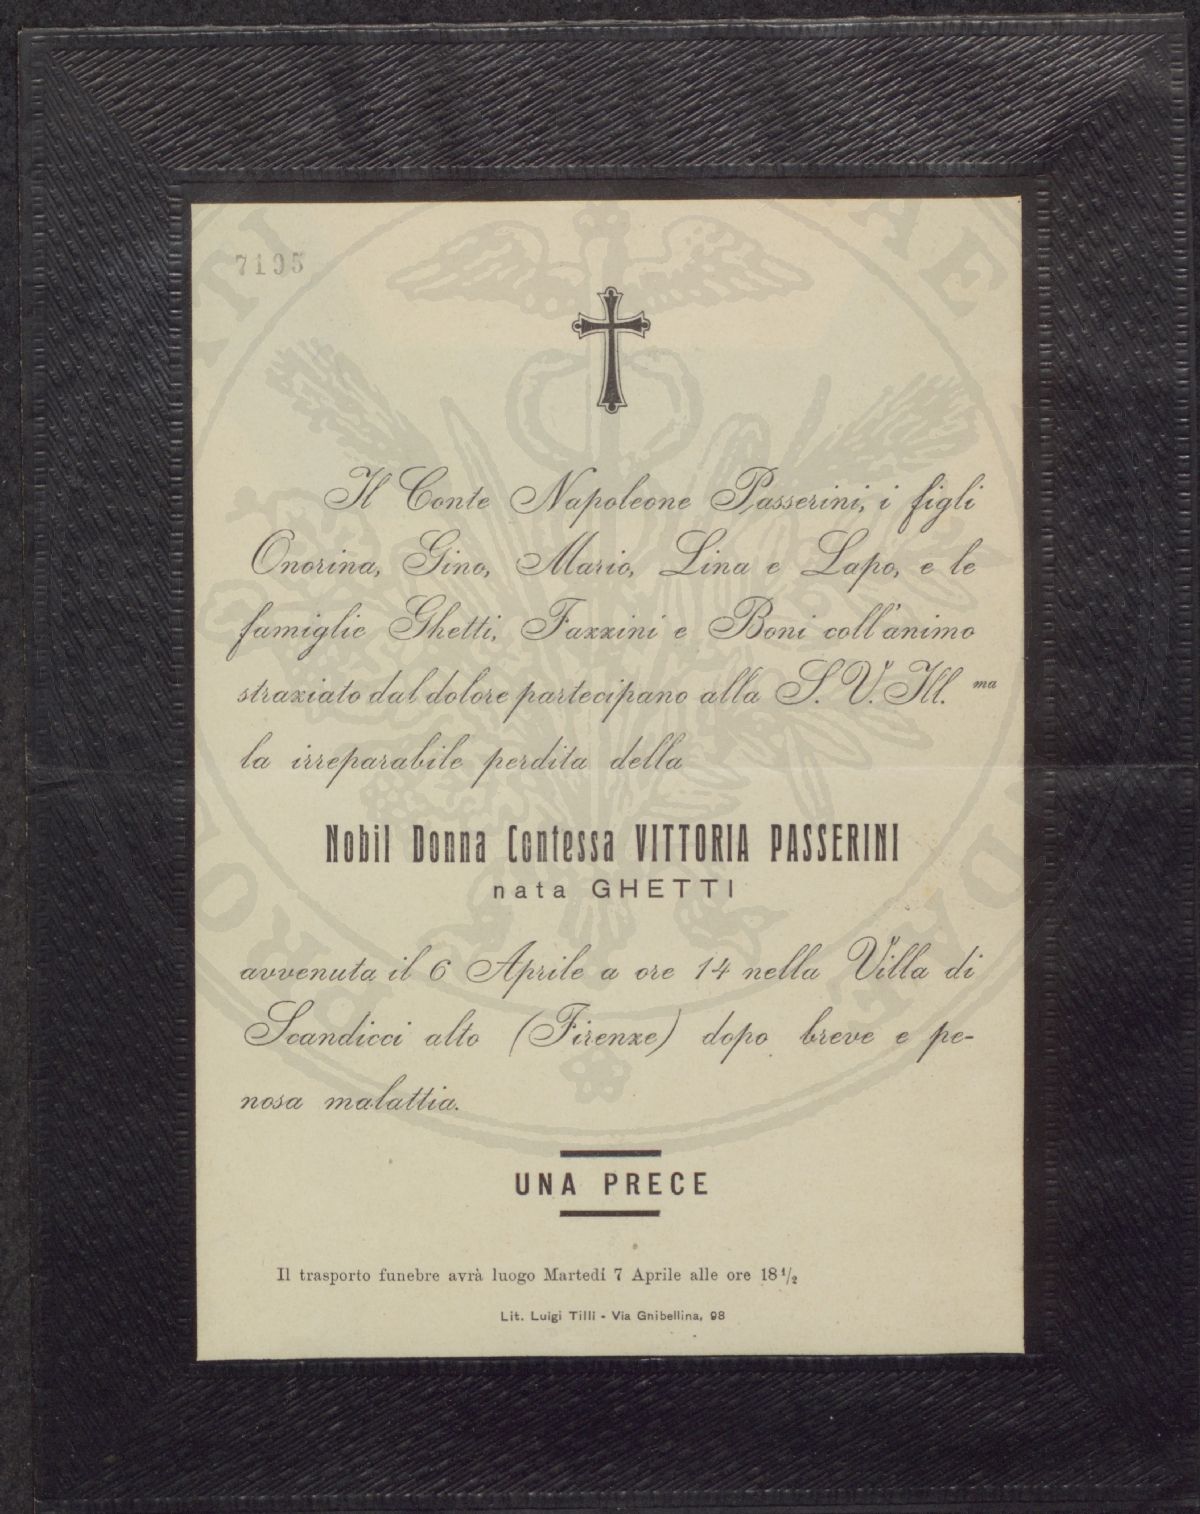 7195
Il Conte Napoleone Passerini, i figli
Onorina, Gino, Mario, Lina e Lapo, e le
famiglie Ghetti, Fazzini e Boni coll'animo
straziato dal dolore partecipano alla S. V. Ill.ma
la irreparabile perdita della
Nobil Donna Contessa VITTORIA PASSERINI
nata GHETTI
avvenuta il 6 Aprile a ore 14 nella Villa di
Scandicci alto (Firenze) dopo breve e pe-
nosa malattia.
UNA PRECE
Il trasporto funebre avrà luogo Martedí 7 Aprile alle ore 18 1/2
Lit. Luigi Tilli - Via Gnibellina, 98